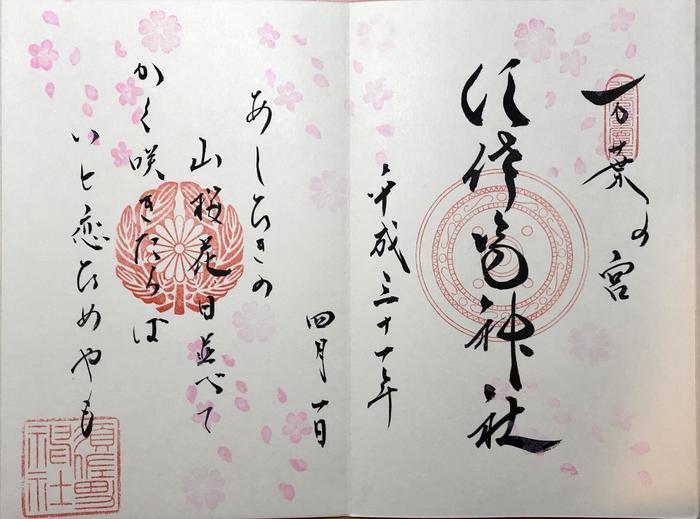 万葉の宮
須佐男神社
平成三十一年
四月一日
あしひきの
山桜花日並べて
かく咲きたらば
いと恋ひめやも